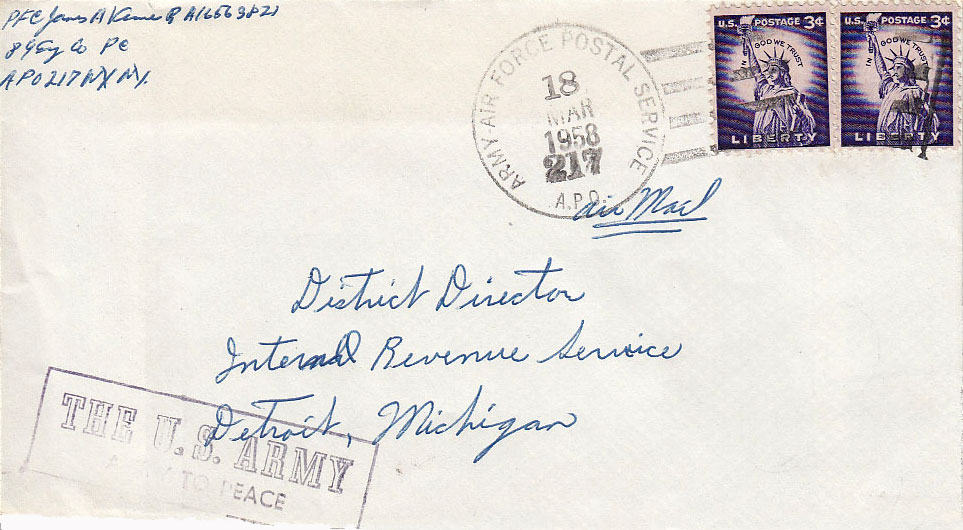 PFC James A
APO 217 NY NY.
ARMY-AIR FORCE POSTAL SERVICE
18
MAR
1958
217
A.P.O.
U.S. POSTAGE 3¢
IN GOD WE TRUST
LIBERTY
U.S. POSTAGE 3¢
IN GOD WE TRUST
LIBERTY
air Mail
District Director
Internal Revenue Service
Detroit, Michigan
THE U.S. ARMY
TO PEACE